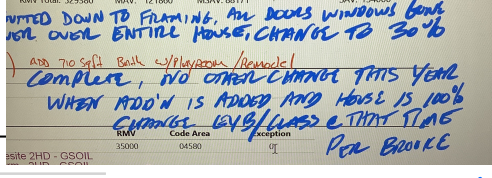 RMV Total: 329380 MAV: 121860
GUTTED DOWN TO FRAMING, ALL DOORS WINDOWS GONE
OVER ENTIRE HOUSE, CHANGE TO 30%
) ADD 710 Sqft Bath w/Playroom /Remodel
COMPLETE, NO OTHER CHANGE THIS YEAR
WHEN ADD'N IS ADDED AND HOUSE IS 100%
CHANGE EYB/CLASS @ THAT TIME
PER BROOKE
RMV Code Area Exception
35000 04580 0
esite 2HD - GSOIL